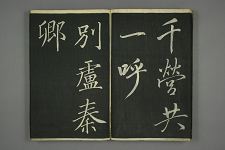 千營共
一呼
別盧秦
卿